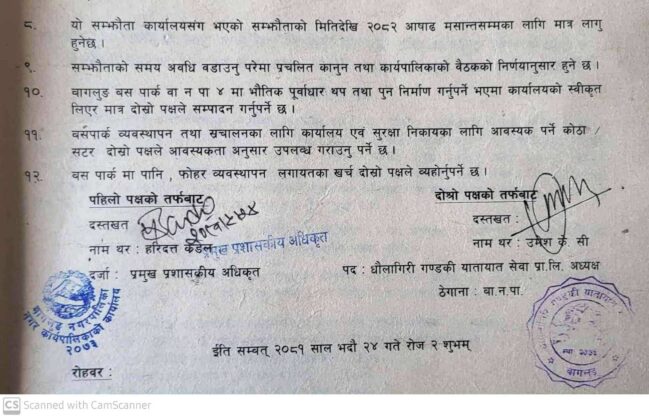 ८. यो सम्झौता कार्यालयसंग भएको सम्झौताको मितिदेखि २०८२ आषाढ मसान्तसम्मका लागि मात्र लागु
हुनेछ ।
९. सम्झौताको समय अवधि बडाउनु परेमा प्रचलित कानुन तथा कार्यपालिकाको बैठकको निर्णयानुसार हुने छ ।
१०. बागलुङ बस पार्क वा न पा ४ मा भौतिक पूर्वाधार थप तथा पुन निर्माण गर्नुपर्ने भएमा कार्यालयको स्वीकृत
लिएर मात्र दोस्रो पक्षले सम्पादन गर्नुपर्ने छ ।
११. बसपार्क व्यवस्थापन तथा सञ्चालनका लागि कार्यालय एवं सुरक्षा निकायका लागि आवस्यक पर्ने कोठा /
सटर दोस्रो पक्षले आवस्यकता अनुसार उपलब्ध गराउनु पर्ने छ ।
१२. बस पार्क मा पानि , फोहर व्यवस्थापन लगायतका खर्च दोस्रो पक्षले ब्यहोर्नुपर्ने छ ।
पहिलो पक्षको तर्फबाट
दोश्रो पक्षको तर्फबाट
दस्तखत
दस्तखत :
नाम थर : हरिदत्त कंडेल
प्रमुख प्रशासकीय अधिकृत
नाम थर : उमेश के. सी
दर्जा : प्रमुख प्रशासकीय अधिकृत
पद : धौलागिरी गण्डकी यातायात सेवा प्रा.लि. अध्यक्ष
ठेगाना : बा.न.पा.
बागलुङ नगरपालिका
नगर कार्यपालिकाको कार्यालय
२०७३
गण्डकी यातायात
बागलुङ
ईति सम्बत् २०८१ साल भदौ २४ गते रोज २ शुभम्
रोहबर :
CS Scanned with CamScanner